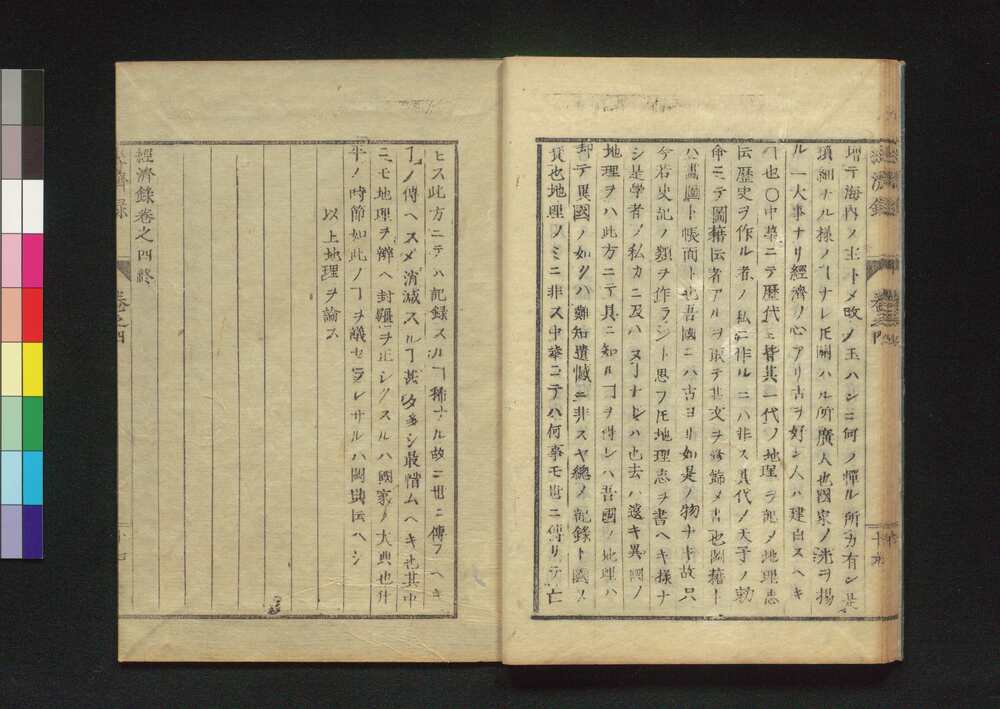 増テ海内ノ主トメ政ノ玉ハンニ何ノ憚ル所カ有ン是
瑣細ナル様ノヿナレ𪜈關ハル所廣大也國家ノ沭ヲ揚
ル一大事ナリ經濟ノ心アリ古ヲ好ン人ハ建白スヘキ
ヿ也〇中華ニテ歴代ニ皆其一代ノ地理ヲ記メ地理志
伝歴史ヲ作ル者ノ私ニ作ルニハ非ス其代ノ天子ノ勅
命ニテ圖籍伝者アルヲ取テ其文ヲ修飾メ書也圖籍ト
ハ畫圖ト帳面ト也吾國ニハ古ヨリ如是ノ物ナキ故只
今若史記ノ類ヲ作ラント思フ𪜈地理志ヲ書ヘキ様ナ
シ是学者ノ私カニ及ハヌヿナレハ也去ハ遠キ異國ノ
地理ヲハ此方ニテ具ニ知ルヿヲ得レハ吾國ノ地理ハ
却テ異國ノ如クハ難知遺憾ニ非スヤ總メ記録ト國ノ
寳也地理ノミニ非ス中華ニテハ何事モ世ニ傳リテ亡
ヒス此方ニテハ記録スルヿ稀ナル故ニ世ニ傳フヘキ
ヿノ傳ヘスメ消滅スルヿ甚タ多シ最惜ムヘキ也其中
ニモ地理ヲ辨ヘ封疆ヲ正シクスルハ國家ノ大典也什
平ノ時節如此ノヿヲ議セラレサルハ闕典伝ハシ
以上地理ヲ論ス
經濟録卷之四終
經濟録
卷之四